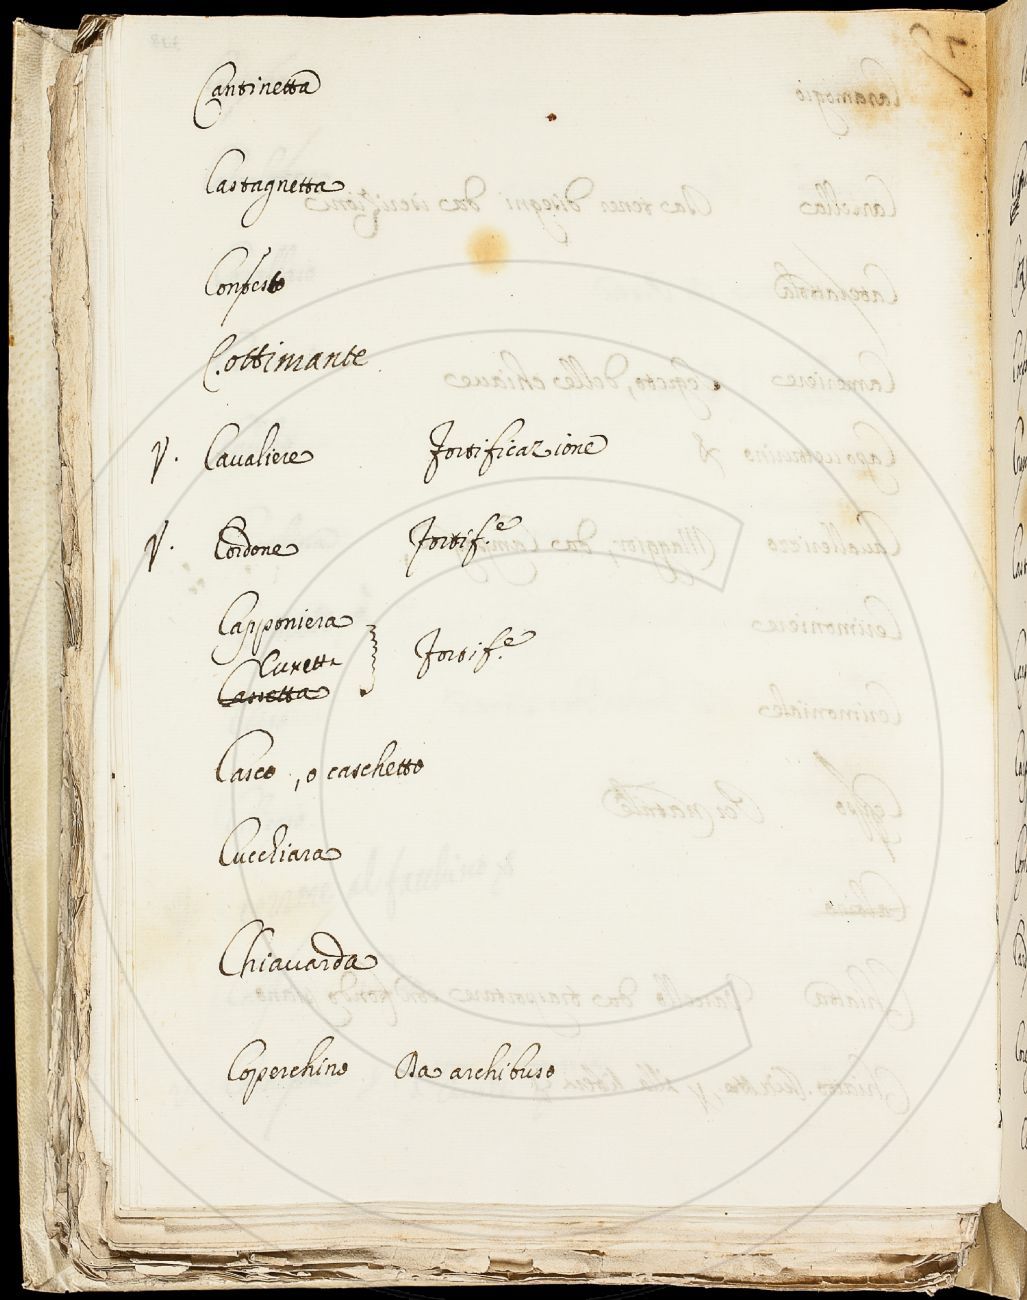 Cantinetta
Castagnetta
Cottimante
V. Cavaliere Fortificazione
V. Cordone Fortif.e
Capponiera
Cunetta Fortif.e
Cassetta
Casco, o caschetto
Cucchiara
Chiavarda
Coperchino Da archibuso